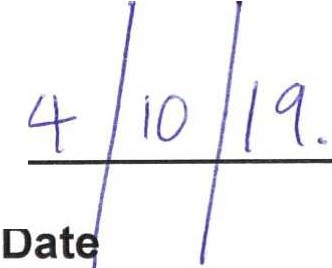 4/10/19.
Date